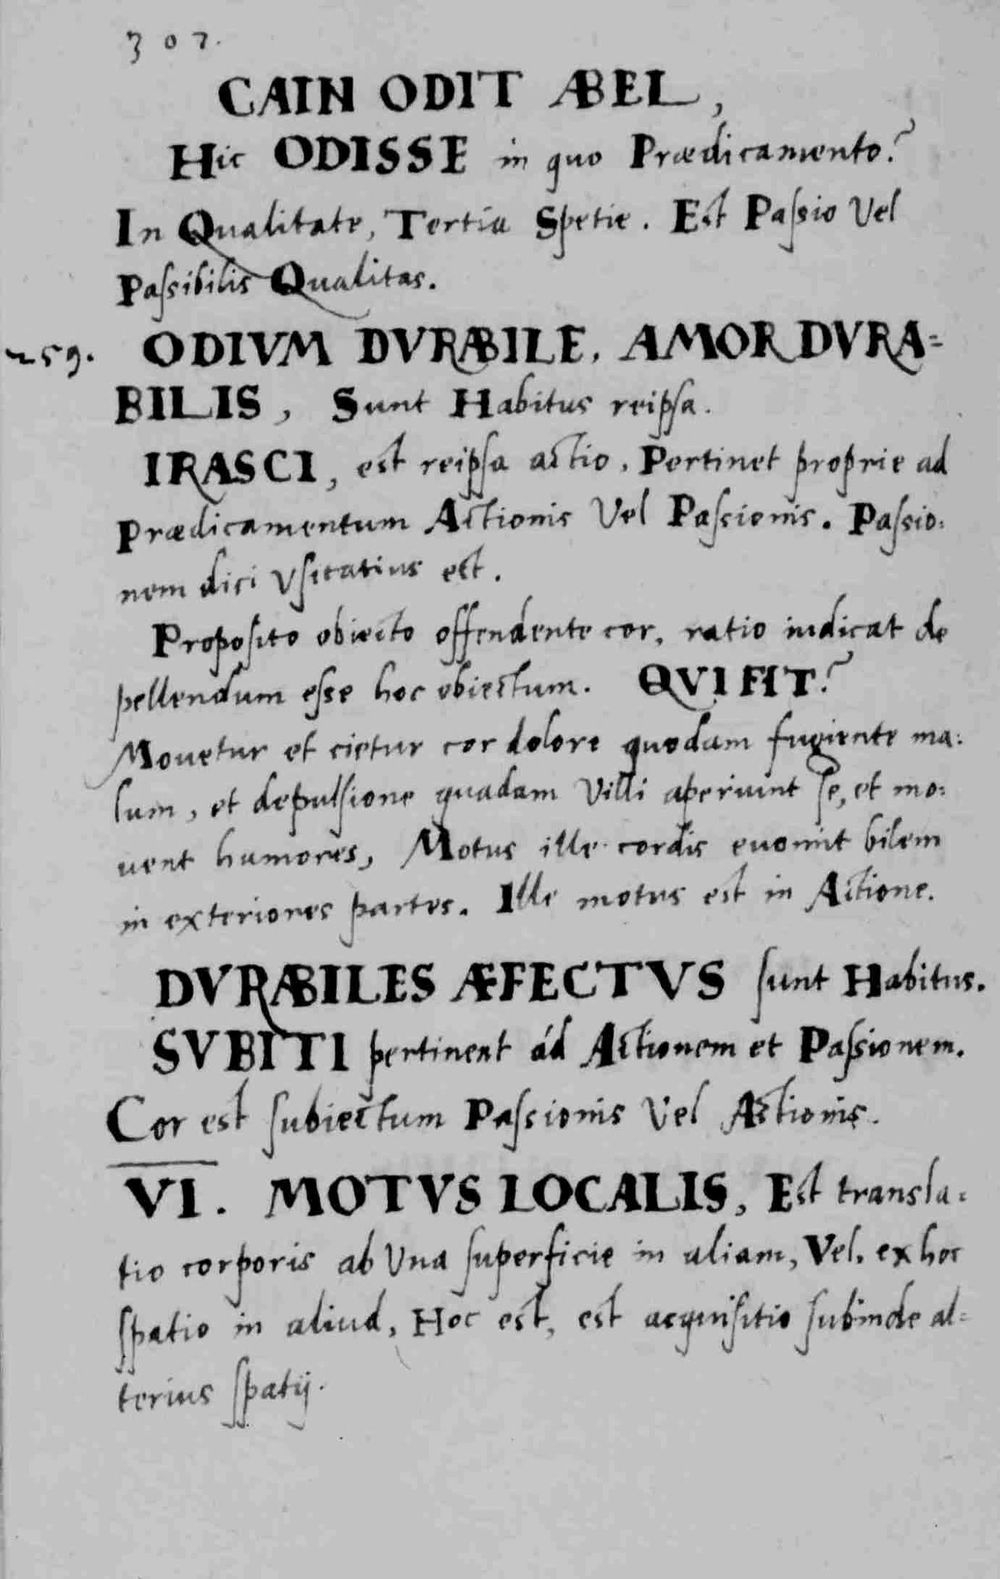 307.
CAIN ODIT ABEL,
Hic ODISSE in quo Prædicamento?
In Qualitate, Tertia Spetie. Est Passio Vel
Passibilis Qualitas.
259. ODIVM DVRABILE, AMOR DVRA=
BILIS, Sunt Habitus reipsa.
IRASCI, est reipsa actio, Pertinet proprie ad
Prædicamentum Actionis Vel Passionis. Passio=
nem dici Vsitatius est.
Proposito obiecto offendente cor, ratio iudicat de
pellendum esse hoc obiectum. QVI FIT?
Mouetur et cietur cor dolore quodam fugiente ma=
lum, et depulsione quadam Villi aperiunt se, et mo=
uent humores, Motus ille cordis euomit bilem
in exteriores partes. Ille motus est in Actione.
DVRABILES AFFECTVS sunt Habitus.
SVBITI pertinent ád Actionem et Passionem.
Cor est subiectum Passionis Vel Actionis.
VI. MOTVS LOCALIS, Est transla=
tio corporis ab Vna superficie in aliam, Vel, ex hoc
spatio in aliud, Hoc est, est acquisitio subinde al=
terius spatij.